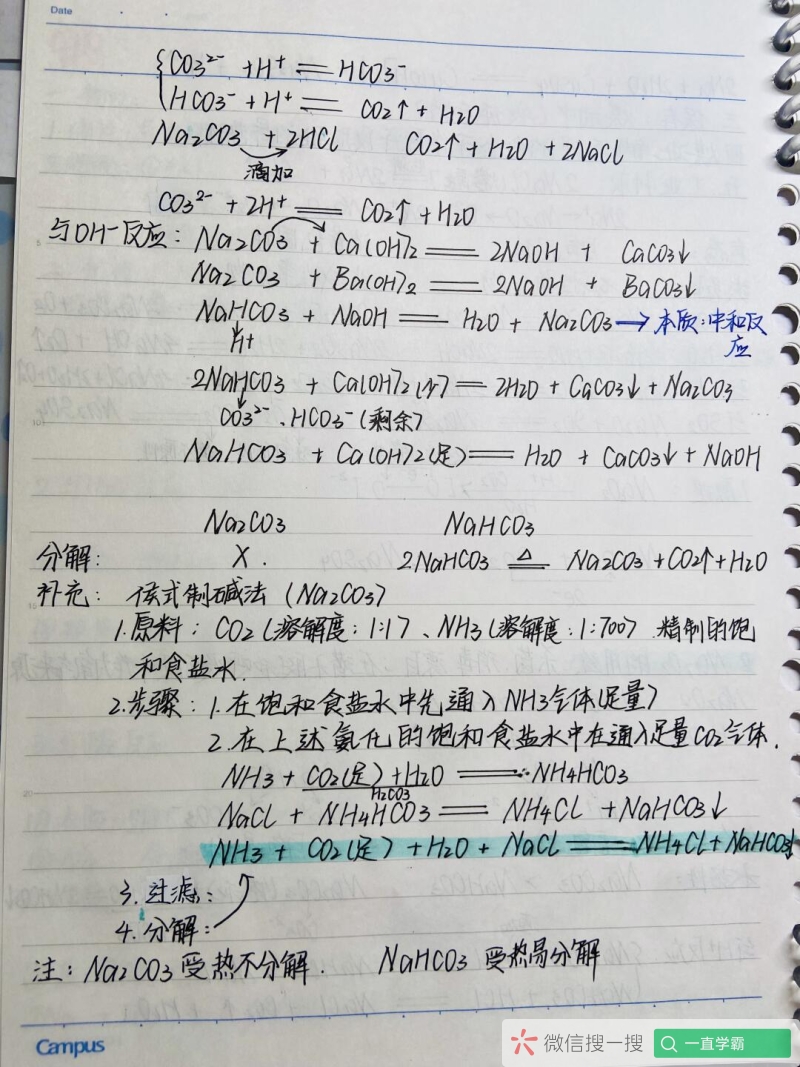 Date
{CO3²⁻ + H⁺ ══ HCO3⁻
HCO3⁻ + H⁺ ══ CO2↑ + H2O
Na2CO3 + 2HCl CO2↑ + H2O + 2NaCl
滴加
CO3²⁻ + 2H⁺ ══ CO2↑ + H2O
与OH⁻反应: Na2CO3 + Ca(OH)2 ══ 2NaOH + CaCO3↓
Na2CO3 + Ba(OH)2 ══ 2NaOH + BaCO3↓
NaHCO3 + NaOH ══ H2O + Na2CO3 → 本质:中和反
应
H+
2NaHCO3 + Ca(OH)2(少) ══ 2H2O + CaCO3↓ + Na2CO3
CO3²⁻、HCO3⁻(剩余)
NaHCO3 + Ca(OH)2(足) ══ H2O + CaCO3↓ + NaOH
Na2CO3 NaHCO3
分解: X. 2NaHCO3 ══△ Na2CO3 + CO2↑ + H2O
补充: 侯式制碱法 (Na2CO3)
1.原料: CO2(溶解度:1:1)、NH3(溶解度:1:700) 精制的饱
和食盐水.
2.步骤: 1.在饱和食盐水中先通入NH3气体(足量)
2.在上述氨化的饱和食盐水中在通入足量CO2气体.
NH3 + CO2(足) + H2O ══ NH4HCO3
H2CO3
NaCl + NH4HCO3 ══ NH4Cl + NaHCO3↓
NH3 + CO2(足) + H2O + NaCl ══ NH4Cl + NaHCO3↓
3.过滤:
4.分解:
注: Na2CO3 受热不分解. NaHCO3 受热易分解
Campus
微信搜一搜 一直学霸